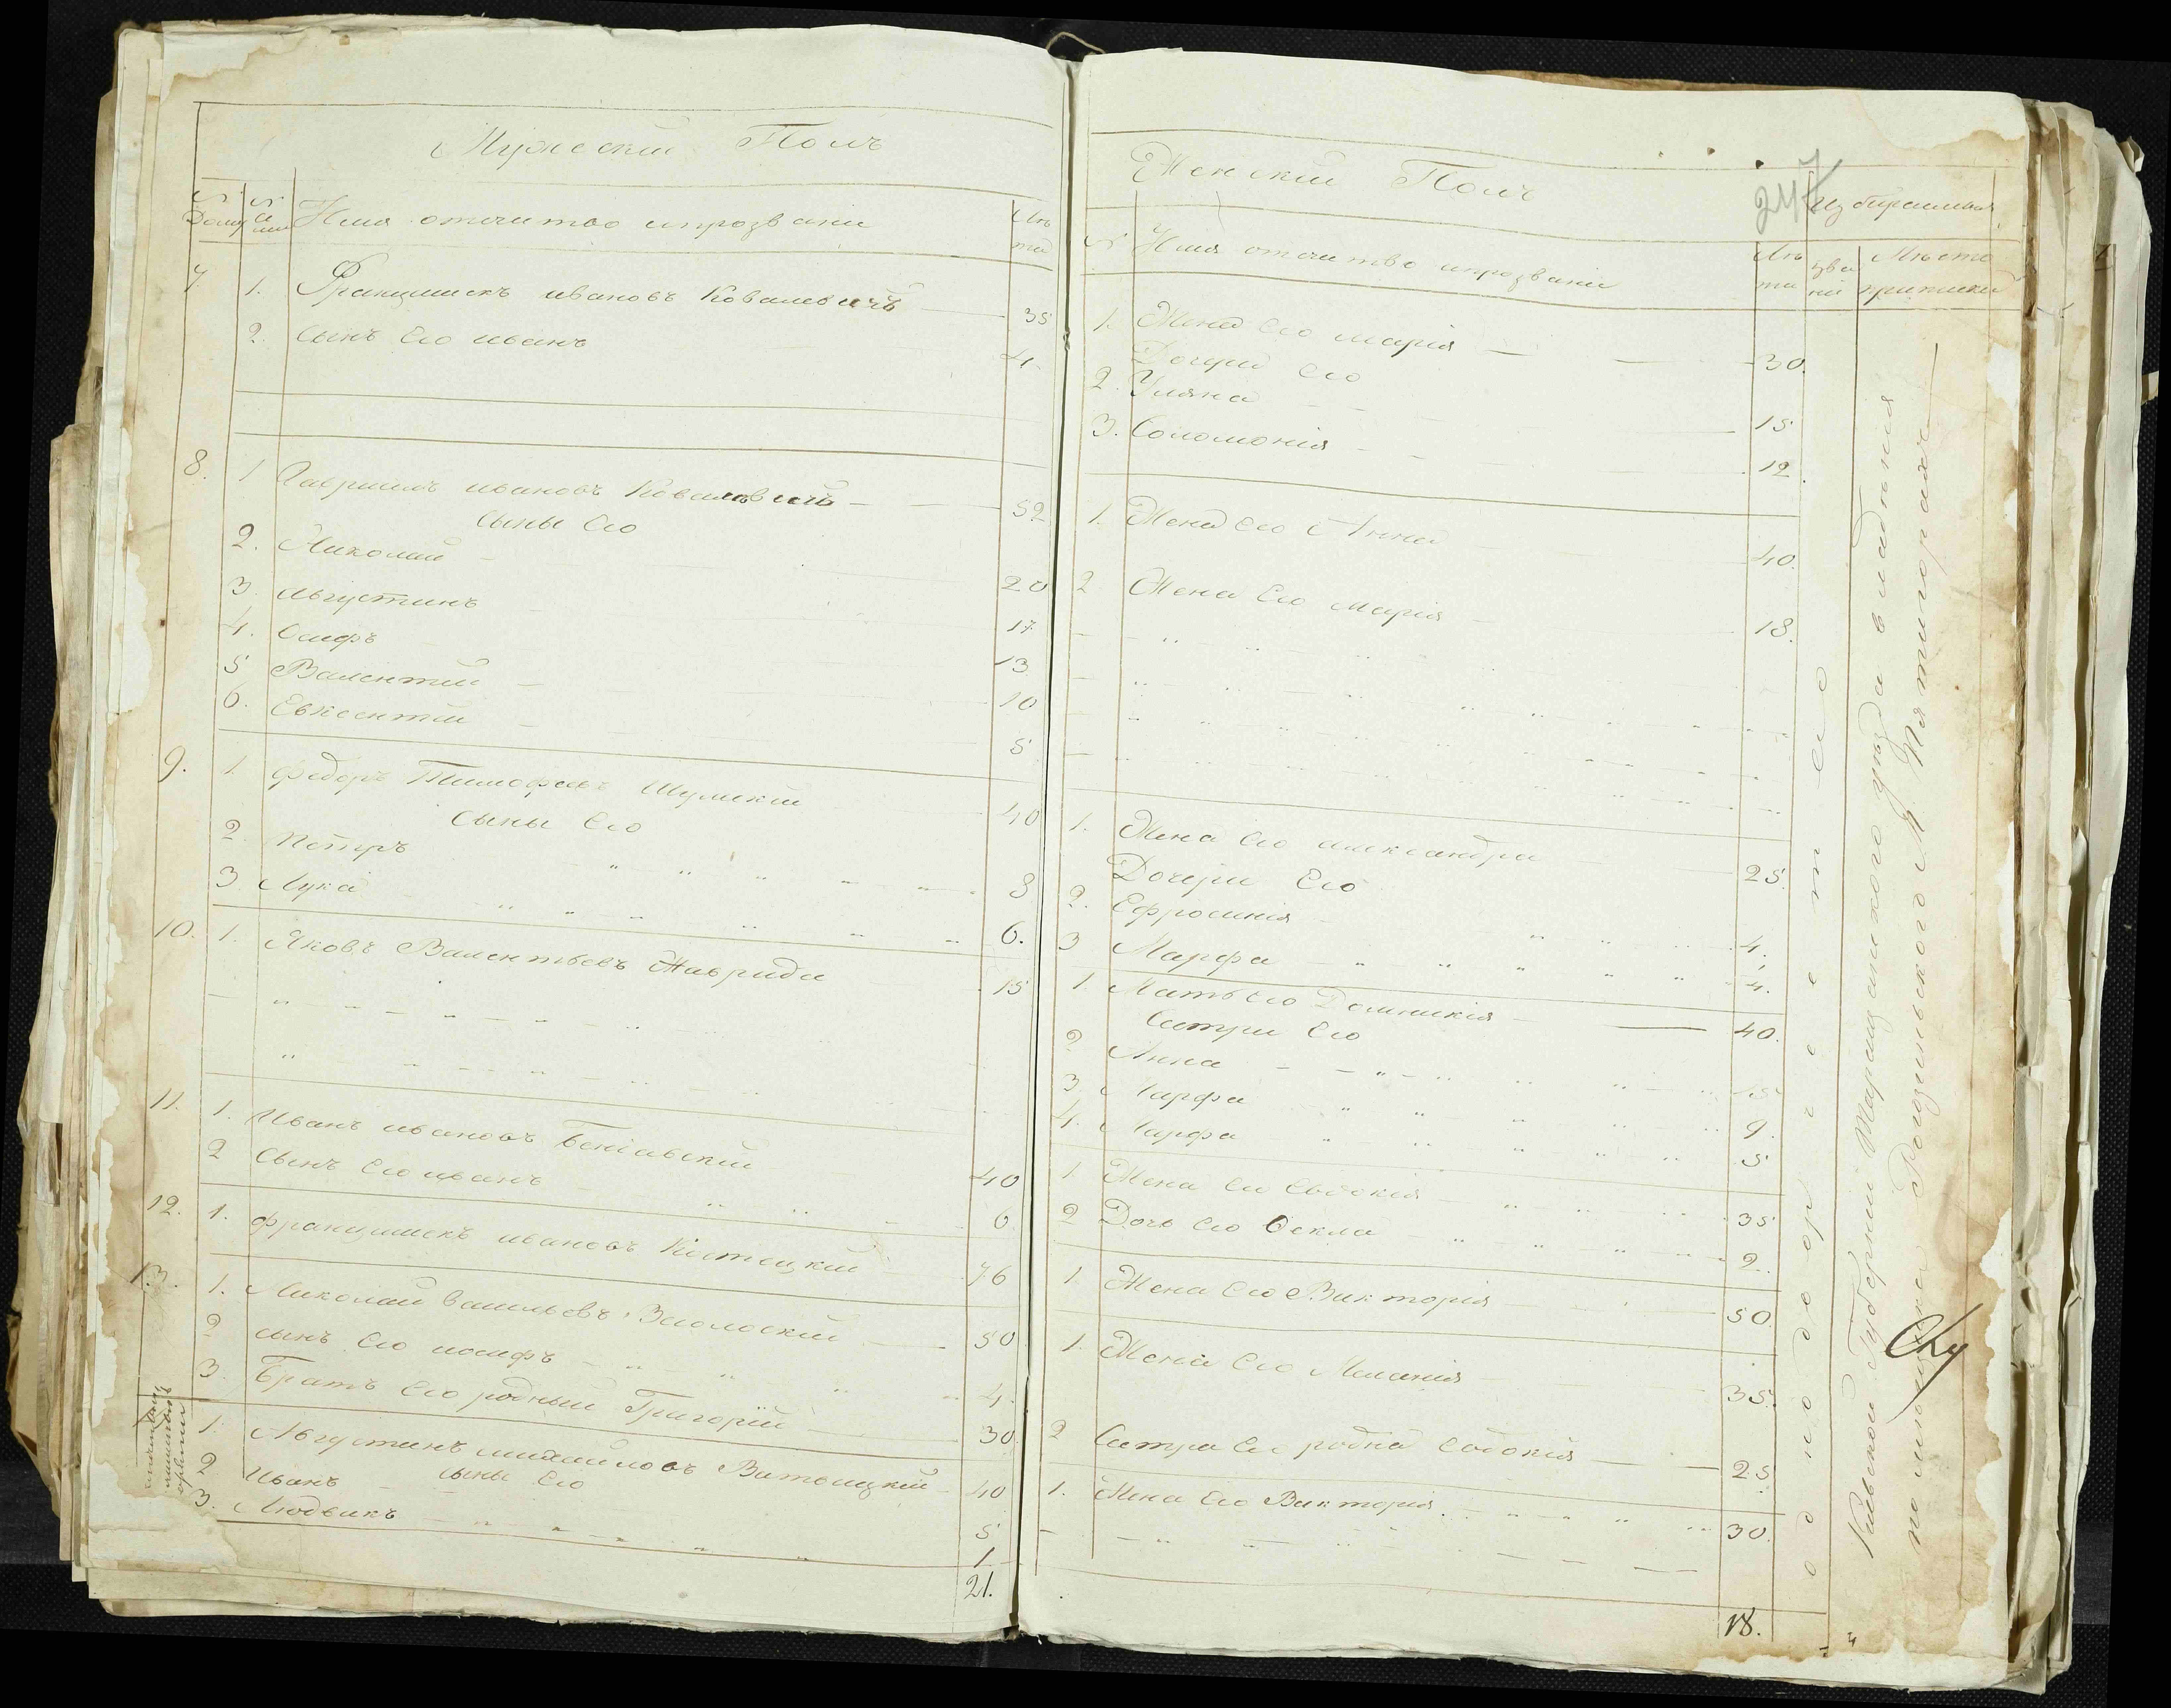 Мужеский Полъ
№ Дому
№ Семи
Имя отечество и прозвание
Лѣта
7 1. Францишекъ ивановъ Ковалевичъ 35
2. Сынъ Его иванъ 4
8. 1 Гавриилъ ивановъ Ковалевичъ 52
Сыны Его
2. Николай 20
3. Августинъ 17
4. Осифъ 13
5 Валентий 10
6. Евксентий 5
9. 1. Федоръ Тимофеевъ Шумский 40
Сыны Его
2 Петръ 8
3 Лука 6.
10. 1. Яковъ Валентьевъ Жавриди 15
11. 1. Иванъ ивановъ 40
2 Сынъ Его иванъ 6
12. 1. францишекъ ивановъ Костецкий 76
13. 1. Николай васильевъ 50
2 сынъ Его иосифъ 4.
3. Братъ Его родный Григорий 30
1. Августинъ михайловъ Витвицкий 40
сыны Его
2 Иванъ 5
3. Людвикъ 1
21.
Женский Полъ
247
№
Имя отечество и прозвание
Лѣта
звание
Мѣсто приписки
1. Жена Его мария 30.
Дочери Его
2. Уляна 15
3. Соломония 12.
1. Жена Его Анна 40.
2 Жена Его мария 18.
1. Жена Его александра 25.
Дочери Его
2. Ефросиния 4.
3 Марфа 4.
1. Мать Его Домникия 40.
Сестри Его
2 Анна 15
3 Марфа 9.
4. Марфа 5
1 Жена Его Евдокия 35
2 Дочь Его Фекла 2.
1. Жена Его Виктория 50.
1. Жена Его Мелания 35.
2 Сестра Его родна Евдокия 25
1. Жена Его Виктория 30.
18.
однодворческаго
Киевской Губернии Таращанского уезда в владения
помещика М. Пятигорахъ